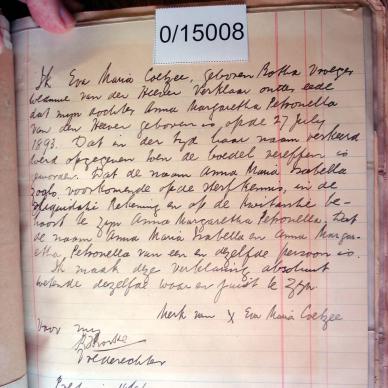 0/15008
Ik Eva Maria Coetzee, geboren Botha Vroeger
weduwe van der Heever Verklaar onder eede
dat mijn dochter Anna Margaretha Petronella
van den Heever geboren is op de 27 July
1893. Dat in der tyd haar naam verkeerd
werd opgegeven toen de boedel vereffen is
geworden. Dat de naam Anna Maria Isabella
zoals voorkomende op de sterf kennis, in de
Likwidatie Rekening en op de Kwitantie be-
hoort te zijn Anna Margaretha Petronella. Dat
de naam Anna Maria Isabella en Anna Marga-
retha Petronella van een en dezelfde persoon is.
Ik maak deze verklaring absoluut
wetende dezelfde waar en juist te zijn
Merk van X Eva Maria Coetzee
Voor my
Vrederechter